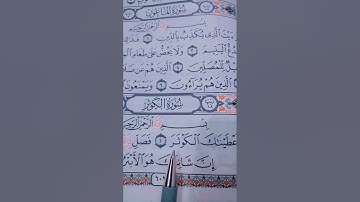 سُورَةُ الْمَاعُونِ
بِسْمِ
الرَّحْمَٰنِ الرَّحِيمِ
الَّذِي يُكَذِّبُ بِالدِّينِ ١
الْيَتِيمَ ٢ وَلَا يَحُضُّ عَلَىٰ طَعَامِ
لِّلْمُصَلِّينَ ٤ الَّذِينَ هُمْ عَن
الَّذِينَ هُمْ يُرَاءُونَ ٦ وَيَمْنَعُونَ
سُورَةُ الْكَوْثَرِ
بِسْمِ
الرَّحْمَٰنِ
عْطَيْنَاكَ الْكَوْثَرَ ١ فَصَلِّ
إِنَّ شَانِئَكَ هُوَ الْأَبْتَرُ
٦٠٢